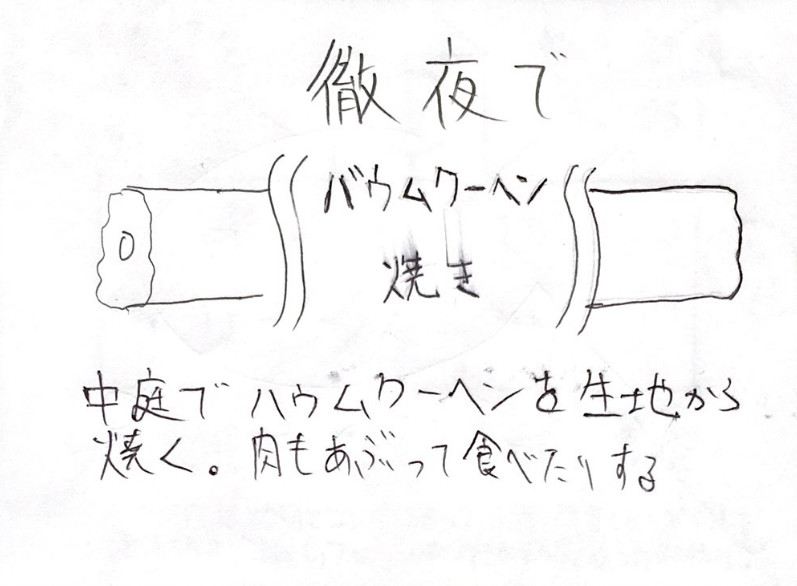 徹夜で
バウムクーヘン
焼き
中庭でハウムクーヘンを生地から
焼く。肉もあぶって食べたりする